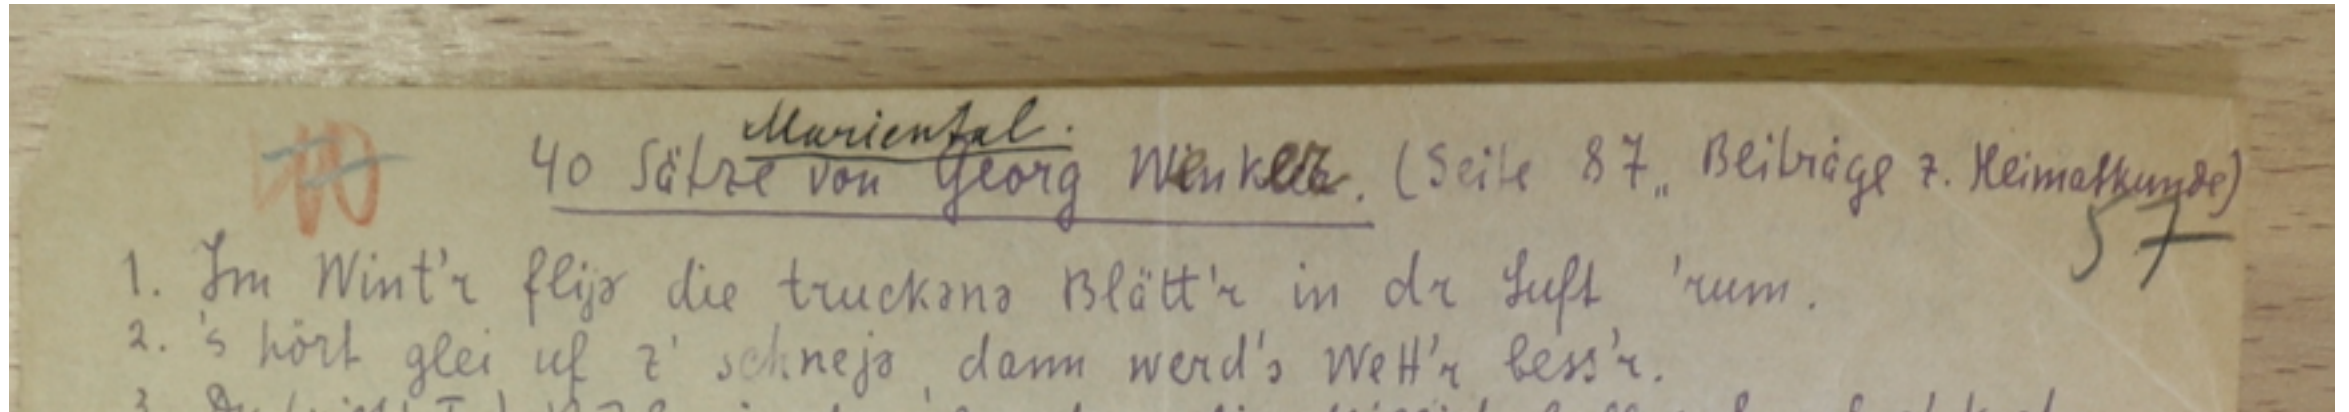 Mariental.
40 Sätze von Georg Wenker. (Seite 87„ Beiträge z. Heimatkunde)
57
1. Im Wint'r flijə die truckənə Blätt'r in dr Luft 'rum.
2. 's hört glei uf z' schnejə, dann werd's Wett'r bess'r.